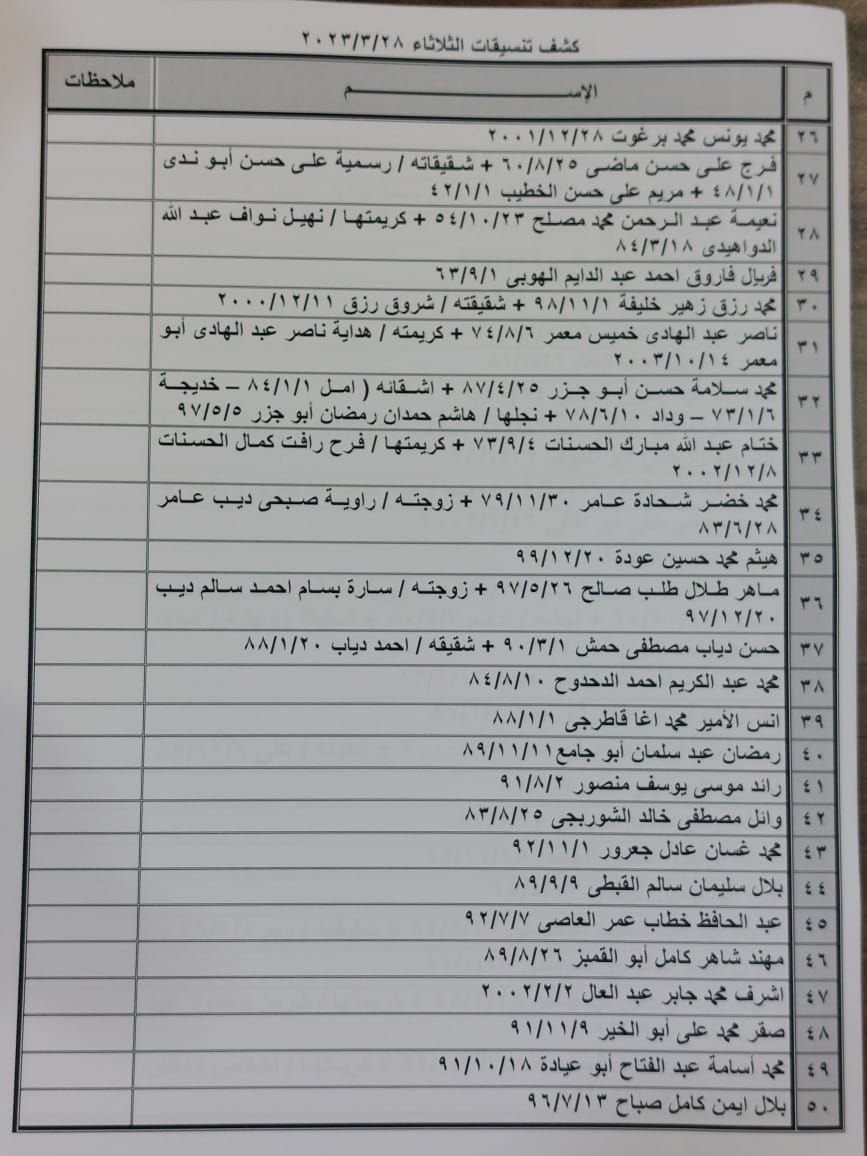 كشف تنسيقات الثلاثاء ٢٠٢٣/٣/٢٨
م الإســــــم ملاحظات
٢٦ محمد يونس محمد برغوت ٢٠٠١/١٢/٢٨
٢٧ فرج على حسن ماضى ٦٠/٨/٢٥ + شقيقاته / رسمية على حسن أبو ندى
٤٨/١/١ + مريم على حسن الخطيب ٤٢/١/١
٢٨ نعيمة عبد الرحمن محمد مصلح ٥٤/١٠/٢٣ + كريمتها / نهيل نواف عبد الله
الدواهيدى ٨٤/٣/١٨
٢٩ فريال فاروق احمد عبد الدايم الهوبى ٦٣/٩/١
٣٠ محمد رزق زهير خليفة ٩٨/١١/١ + شقيقته / شروق رزق ٢٠٠٠/١٢/١١
٣١ ناصر عبد الهادى خميس معمر ٧٤/٨/٦ + كريمته / هداية ناصر عبد الهادى أبو
معمر ٢٠٠٣/١٠/١٤
٣٢ محمد سلامة حسن أبو جزر ٨٧/٤/٢٥ + اشقائه ( امل ٨٤/١/١ – خديجة
٧٣/١/٦ – وداد ٧٨/٦/١٠ + نجلها / هاشم حمدان رمضان أبو جزر ٩٧/٥/٥
٣٣ ختام عبد الله مبارك الحسنات ٧٣/٩/٤ + كريمتها / فرح رافت كمال الحسنات
٢٠٠٢/١٢/٨
٣٤ محمد خضر شحادة عامر ٧٩/١١/٣٠ + زوجته / راوية صبحى ديب عامر
٨٣/٦/٢٨
٣٥ هيثم محمد حسين عودة ٩٩/١٢/٢٠
٣٦ ماهر طلال طلب صالح ٩٧/٥/٢٦ + زوجته / سارة بسام احمد سالم ديب
٩٧/١٢/٢٠
٣٧ حسن دياب مصطفى حمش ٩٠/٣/١ + شقيقه / احمد دياب ٨٨/١/٢٠
٣٨ محمد عبد الكريم احمد الدحدوح ٨٤/٨/١٠
٣٩ انس الأمير محمد اغا قاطرجى ٨٨/١/١
٤٠ رمضان عبد سلمان أبو جامع ٨٩/١١/١١
٤١ رائد موسى يوسف منصور ٩١/٨/٢
٤٢ وائل مصطفى خالد الشوربجى ٨٣/٨/٢٥
٤٣ محمد غسان عادل جعرور ٩٢/١١/١
٤٤ بلال سليمان سالم القبطى ٨٩/٩/٩
٤٥ عبد الحافظ خطاب عمر العاصى ٩٢/٧/٧
٤٦ مهند شاهر كامل أبو القمبز ٨٩/٨/٢٦
٤٧ اشرف محمد جابر عبد العال ٢٠٠٢/٢/٢
٤٨ صقر محمد على أبو الخير ٩١/١١/٩
٤٩ محمد أسامة عبد الفتاح أبو عيادة ٩١/١٠/١٨
٥٠ بلال ايمن كامل صباح ٩٦/٧/١٣